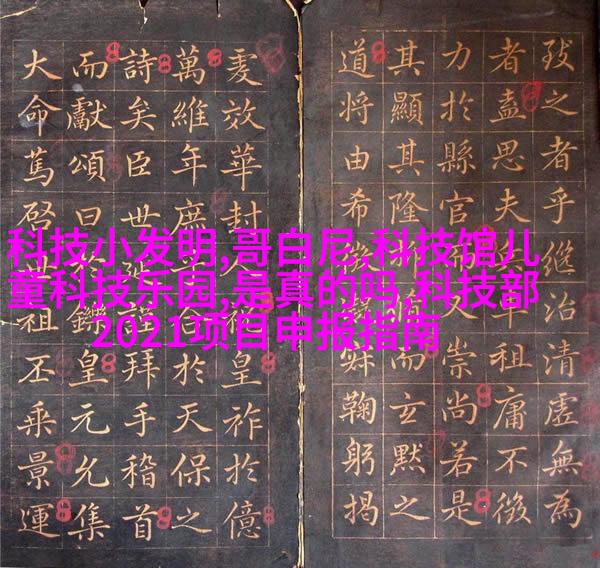 科技小发明,哥白尼,科技馆儿
童科技乐园,是真的吗,科技部
2021项目申报指南
之者乎继治清虚無為
者盍思夫卑祖庸不徵
力於縣官又崇尚若是
其顯其隆而玄默之
道將由希鞠躬揭
效華封人皇祚於億
萬維年庶於天保之
詩矣臣世延謹拜手稽首
而獻頌曰於鑠皇元允集
大命篤啓世祖丕乘景運